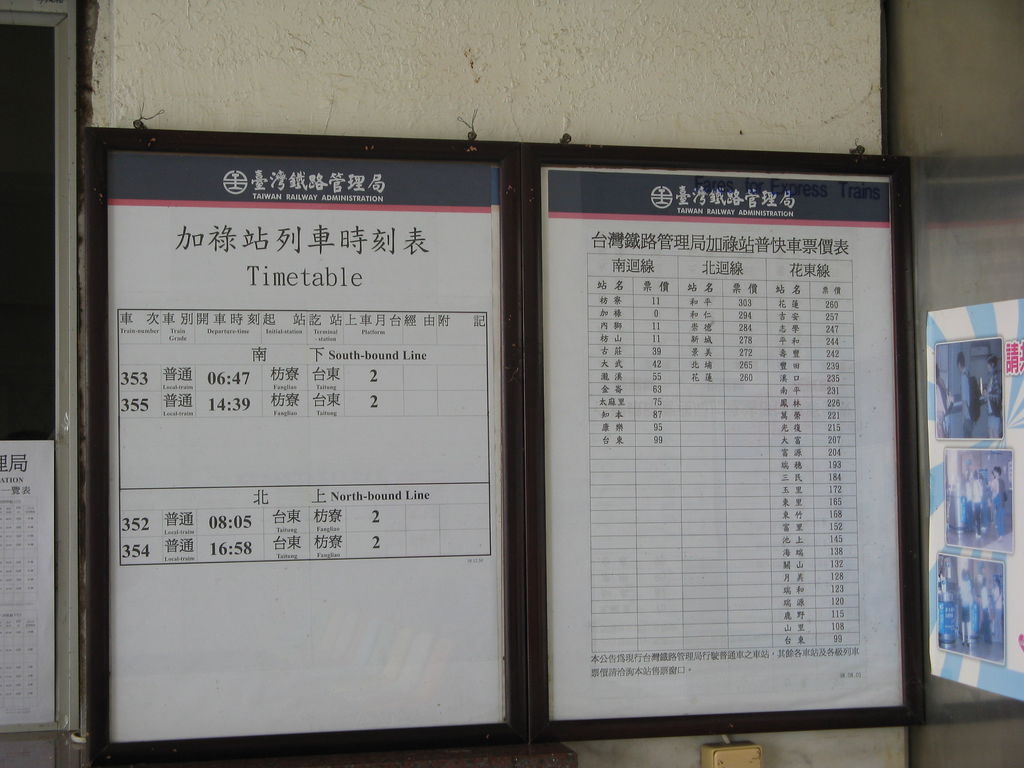 臺灣鐵路管理局
TAIWAN RAILWAY ADMINISTRATION
加祿站列車時刻表
Timetable
車次 車別 開車時刻 起站 訖站 上車月台 經由 附記
Train-number Train Grade Departure-time Initial-station Terminal-station Platform
南下 South-bound Line
353 普通 Local-train 06:47 枋寮 Fangliao 台東 Taitung 2
355 普通 Local-train 14:39 枋寮 Fangliao 台東 Taitung 2
北上 North-bound Line
352 普通 Local-train 08:05 台東 Taitung 枋寮 Fangliao 2
354 普通 Local-train 16:58 台東 Taitung 枋寮 Fangliao 2
臺灣鐵路管理局
TAIWAN RAILWAY ADMINISTRATION
Fares for Express Trains
台灣鐵路管理局加祿站普快車票價表
南迴線 北迴線 花東線
站名 票價 站名 票價 站名 票價
枋寮 11 和平 303 花蓮 260
加祿 0 和仁 294 吉安 257
內獅 11 崇德 284 志學 247
枋山 11 新城 278 平和 244
古莊 39 景美 272 壽豐 242
大武 42 北埔 265 豐田 239
瀧溪 55 花蓮 260 溪口 235
金崙 63 南平 231
太麻里 75 鳳林 226
知本 87 萬榮 221
康樂 95 光復 215
台東 99 大富 207
富源 204
瑞穗 193
三民 184
玉里 172
東里 165
東竹 168
富里 152
池上 145
海端 138
關山 132
月美 128
瑞和 123
瑞源 120
鹿野 115
山里 108
台東 99
本公告為現行台灣鐵路管理局行駛普通車之車站，其餘各車站及各級列車
票價請洽詢本站售票窗口。
98.08.01
理局
ATION
一覽表
請